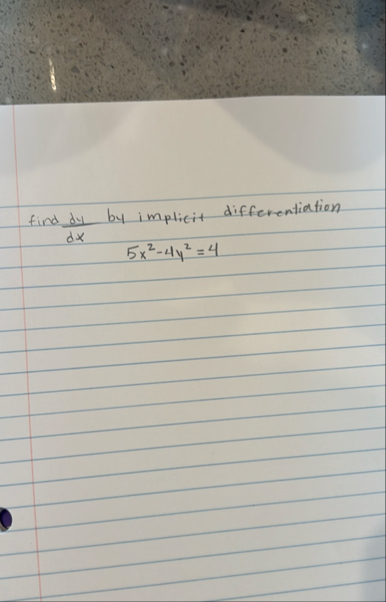 find dy/dx by implicit differentiation
5x²-4y²=4